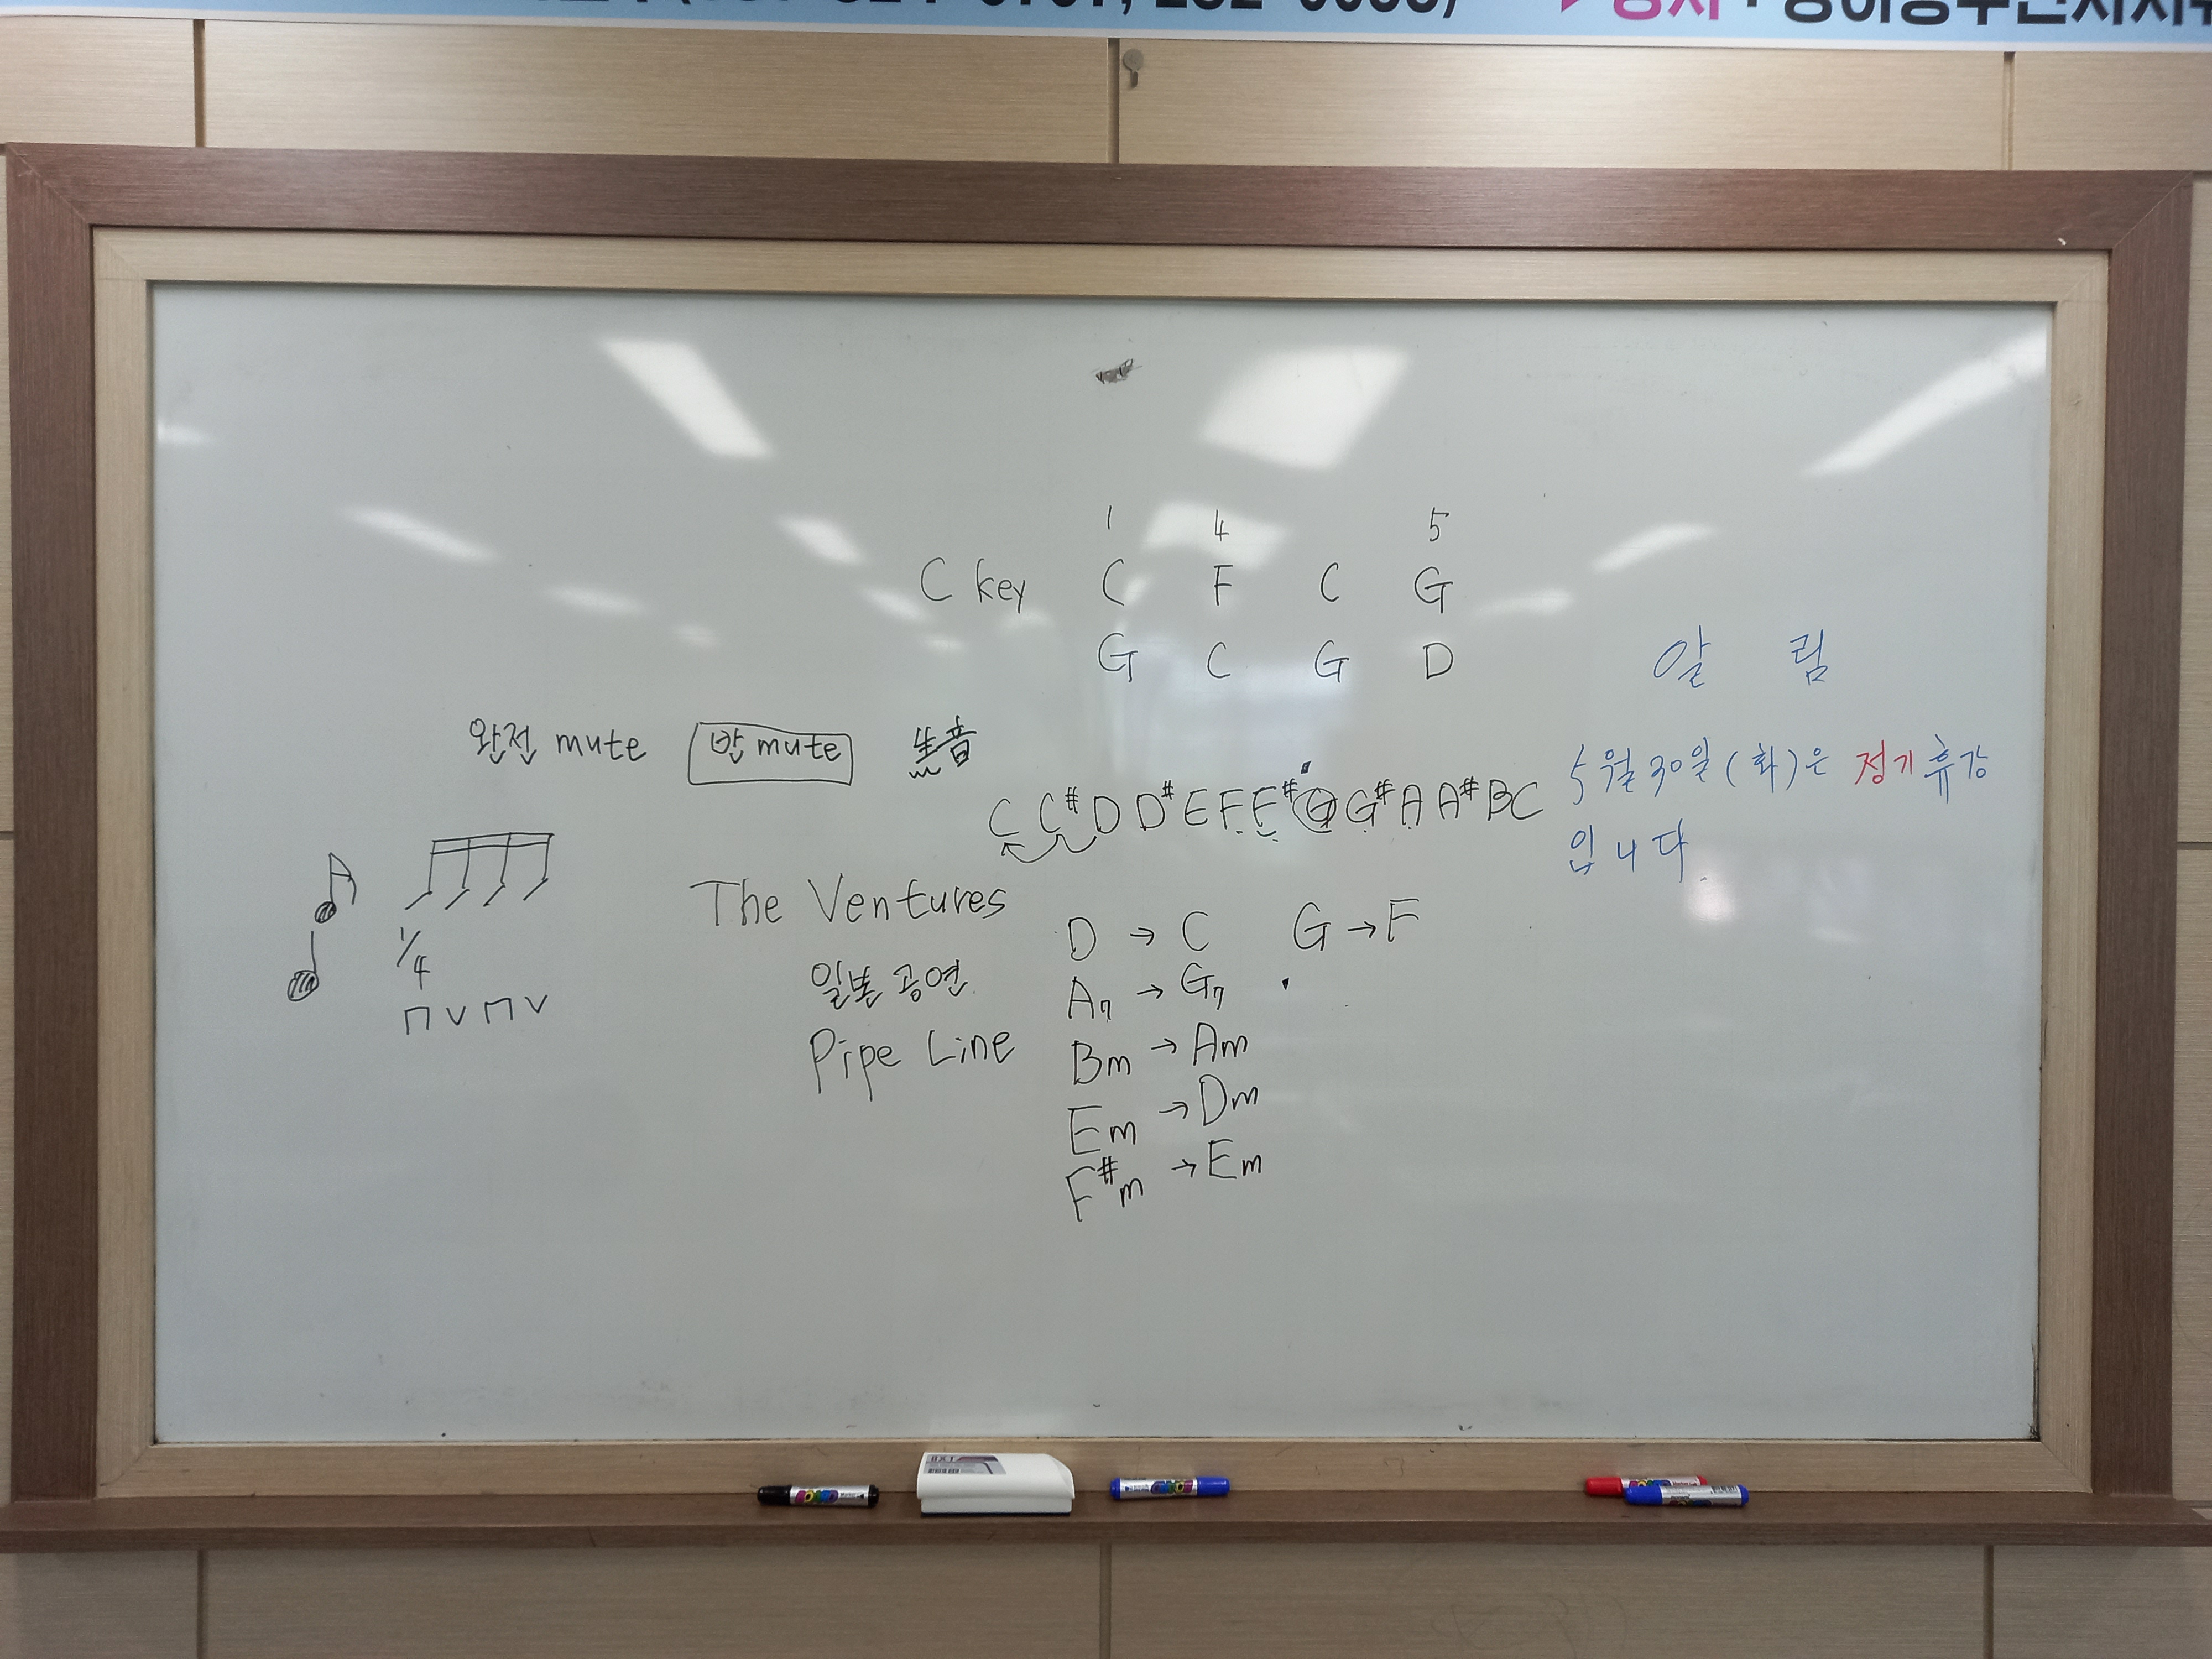 1 4 5
C key C F C G
G C G D
알 림
완전 mute 반 mute
5월 30일 (화)은 정기 휴강
입니다.
C C# D D# E F F# G G# A A# B C
The Ventures
일본 공연
Pipe Line
1/4
D → C G → F
A7 → G7
Bm → Am
Em → Dm
F#m → Em